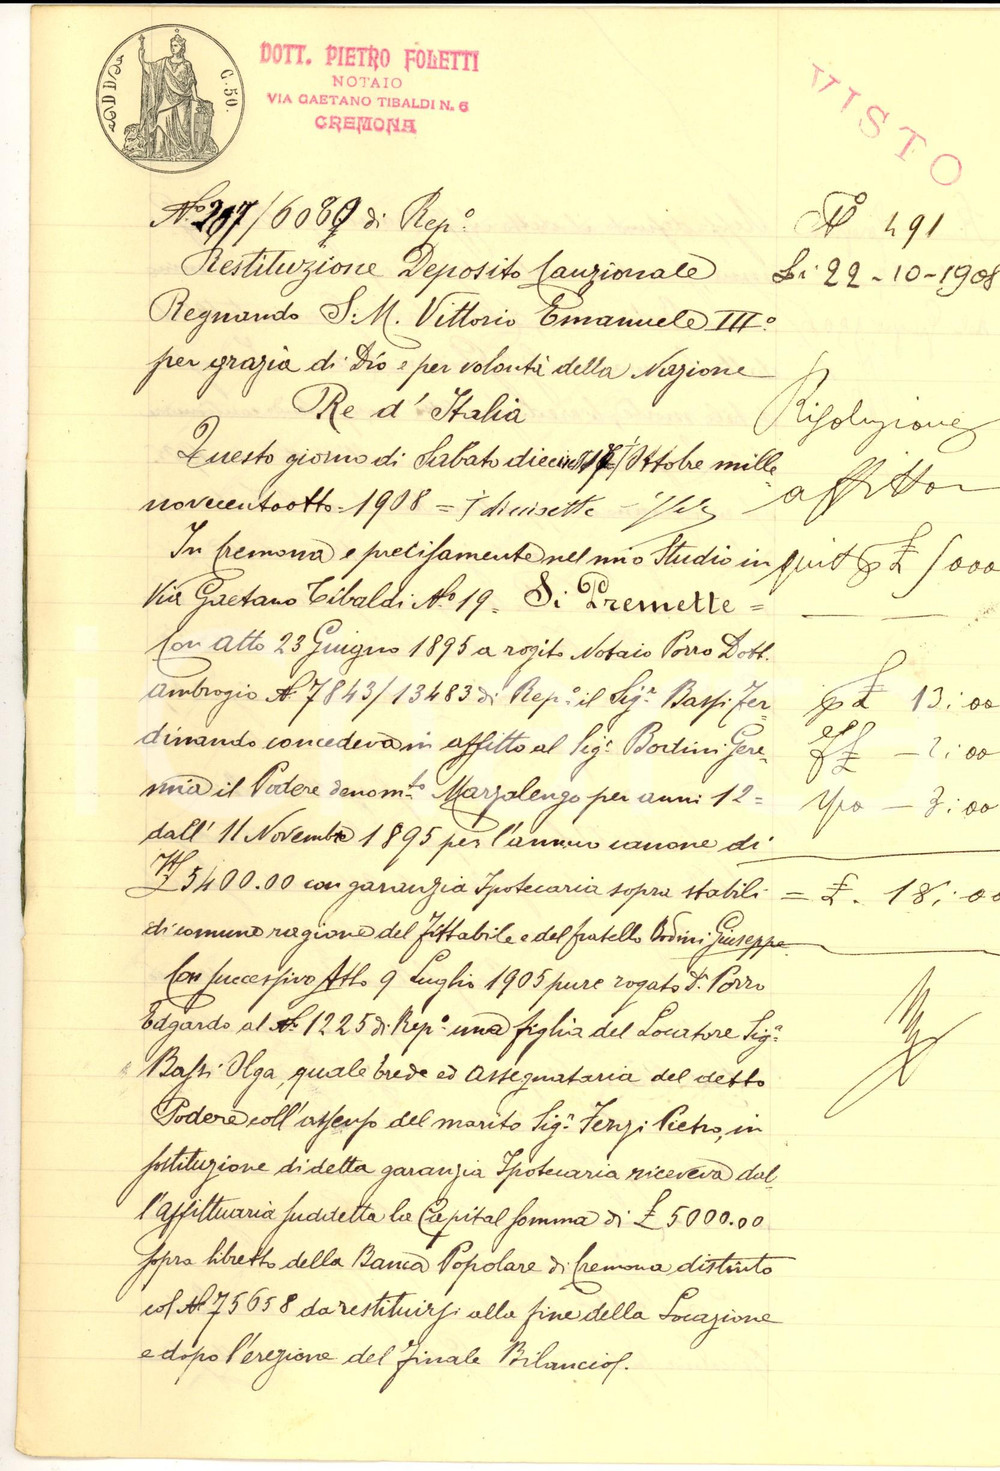 C. 50.
DOTT. PIETRO FOLETTI
NOTAIO
VIA GAETANO TIBALDI N. 6
CREMONA
VISTO
N.º 207/6089 di Rep.º
Restituzione Deposito Cauzionale
Regnando S. M. Vittorio Emanuele III.º
per grazia di Dio e per volontà della Nazione
Re d'Italia
Questo giorno di Sabato 17 Ottobre mille
novecentootto - 1908 = diecisette
In Cremona e precisamente nel mio Studio in
Via Gaetano Tibaldi N.º 19 - Si Premette =
Con atto 23 Giugno 1895 a rogito Notaio Porro Dott.
Ambrogio N. 7843/13483 di Rep.º il Sig.r Bassi Fer-
dinando concedeva in affitto al Sig.r Bordini Gere-
mia il Podere denom.to Marzalengo per anni 12 =
dall' 11 Novembre 1895 per l'annuo canone di
£ 5400.00 con garanzia Ipotecaria sopra stabili
di comune ragione del fittabile e del fratello Bordini Giuseppe
Con successivo Atto 9 Luglio 1905 pure rogato Dr. Porro
Edgardo al N. 1225 di Rep.º una figlia del Locatore Sig.a
Bassi Olga, quale Erede ed Assegnataria del detto
Podere coll'assenso del marito Sig.r Ferzi Pietro, in
sostituzione di detta garanzia Ipotecaria riceveva dal-
l'affittuaria suddetta la Capital somma di £ 5000.00
sopra libretto della Banca Popolare di Cremona distinto
col N. 75658 da restituirsi alla fine della Locazione
e dopo l'erezione del finale Bilancio.
Nº 491
Li 22-10-1908
Risoluzione
affitto
quit £ 5000
£ 13:00
£ - 2:00
- 3:00
= £. 18:00